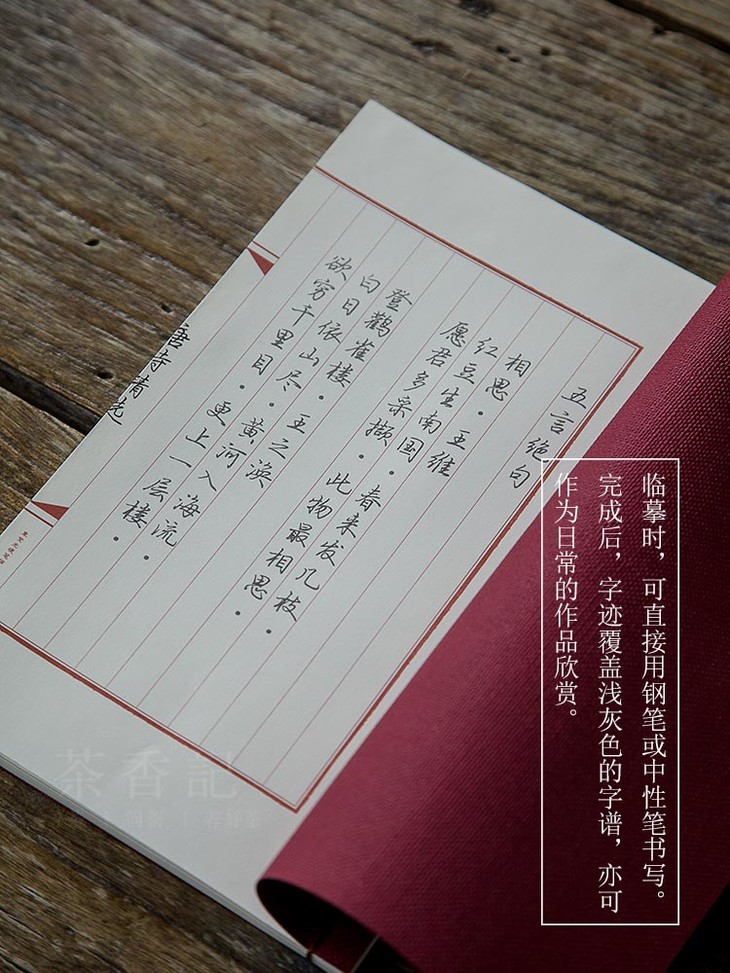 五言绝句
相思·王维
红豆生南国·春来发几枝·
愿君多采撷·此物最相思·
登鹳雀楼·王之涣
白日依山尽·黄河入海流·
欲穷千里目·更上一层楼·
唐诗精选
临摹时，可直接用钢笔或中性笔书写。
完成后，字迹覆盖浅灰色的字谱，亦可
作为日常的作品欣赏。
茶香記